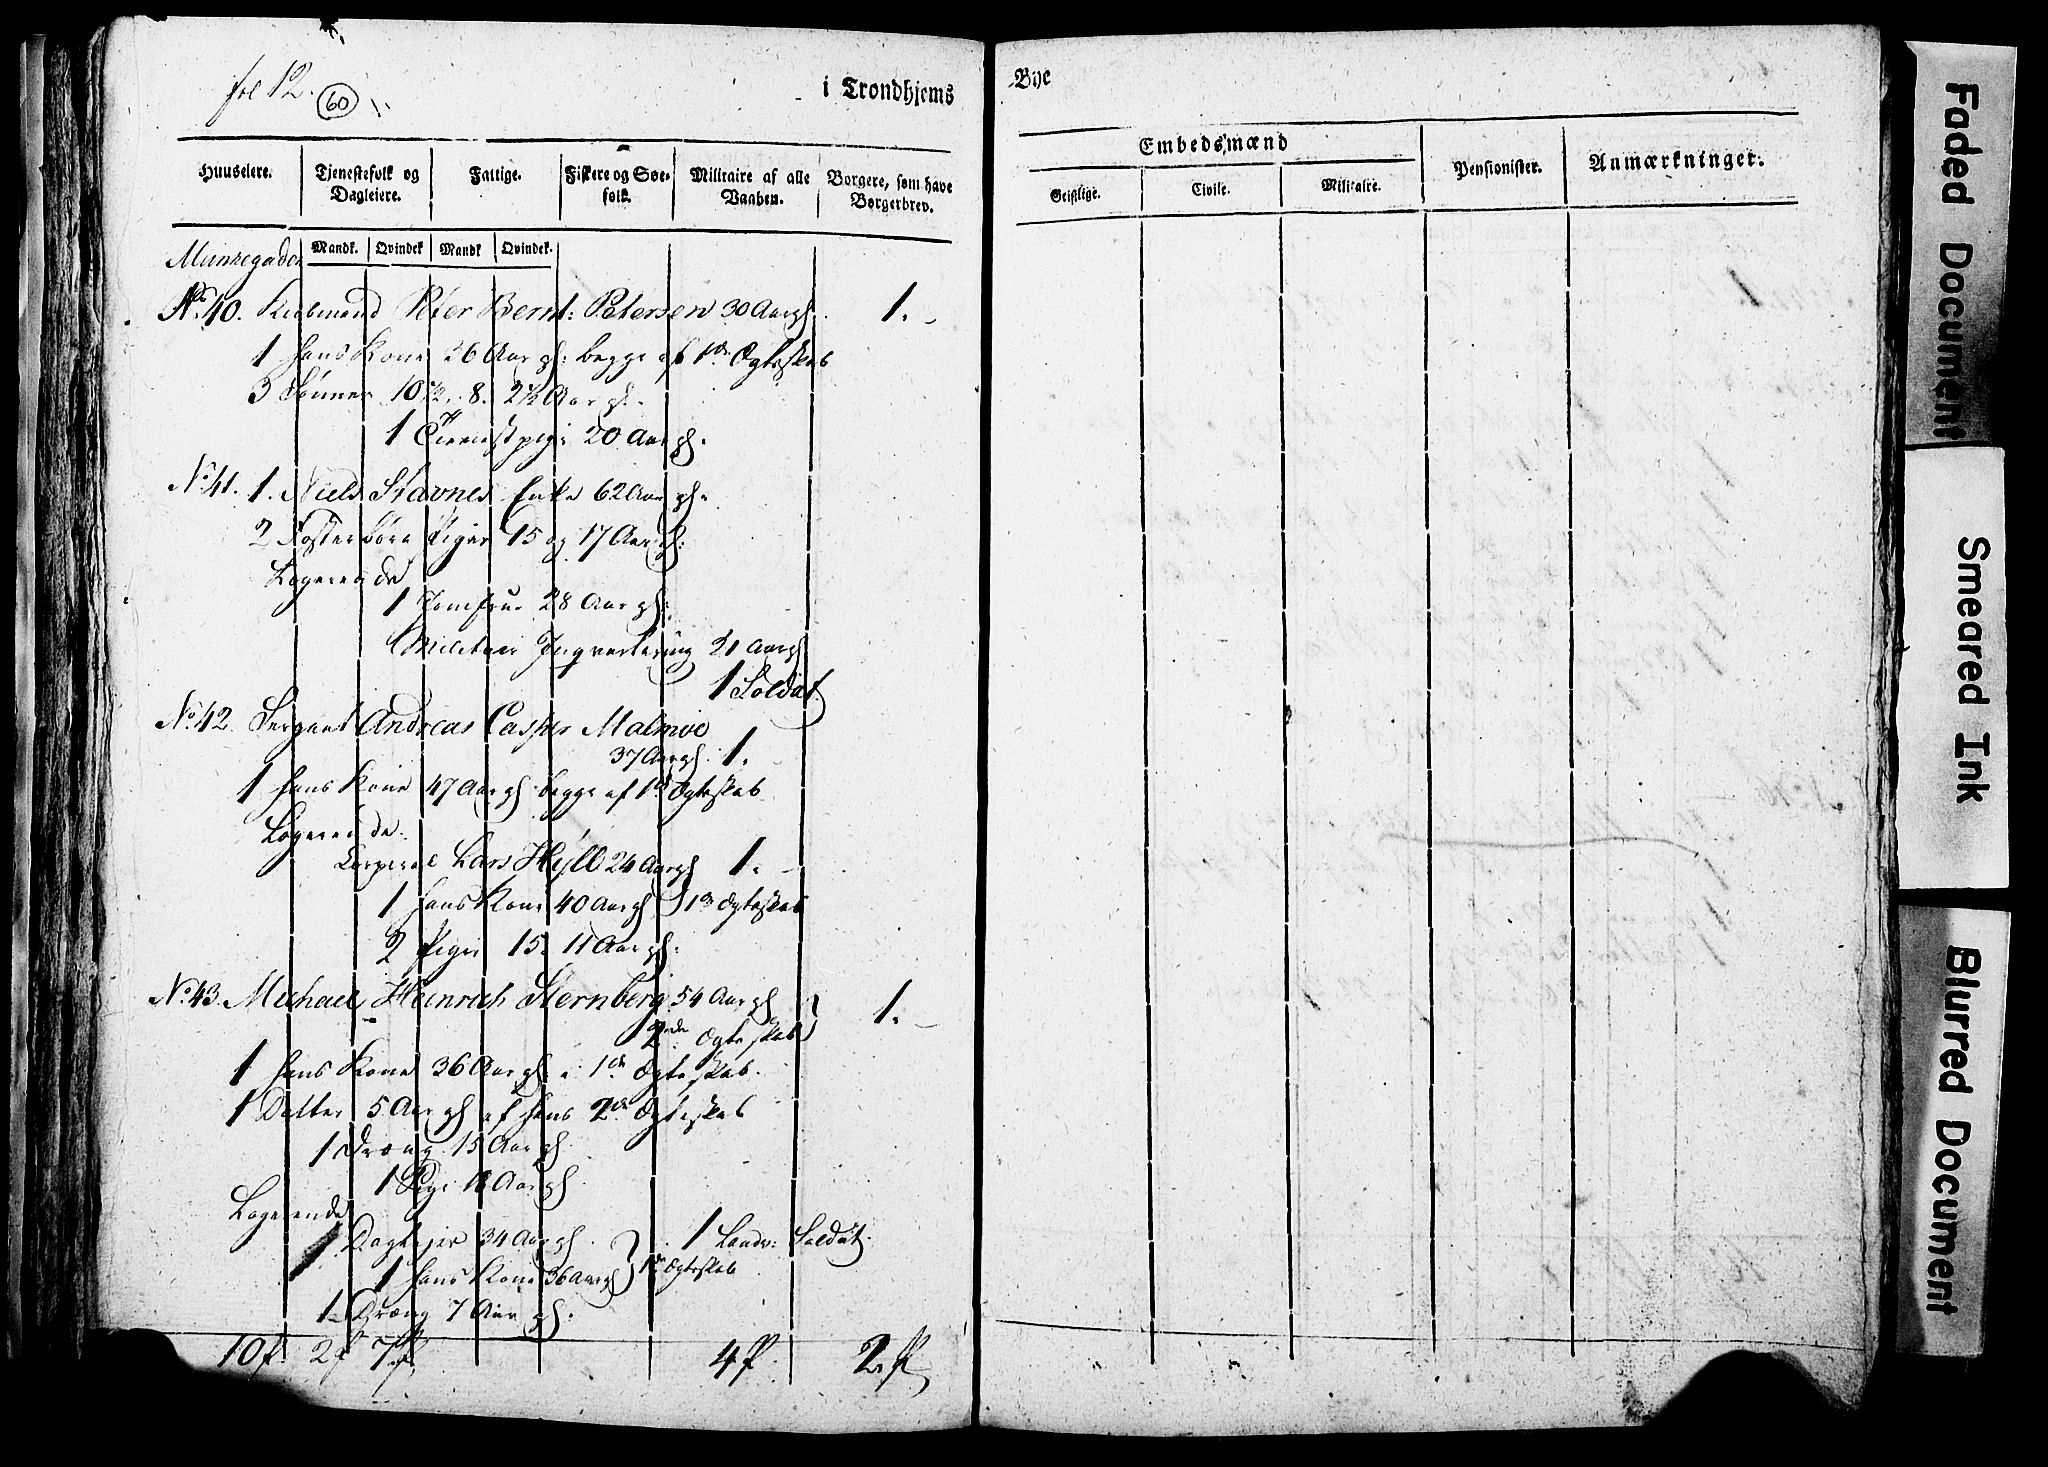 fol 12. 60
i Trondhjems
Huuseiere. Tjenestefolk og Dagleiere. Fattige. Fiskere og Søefolk. Militaire af alle Vaaben. Borgere, som have Borgerbrev.
Mandk. Qvindek Mandk Qvindek.
Munkegaden
No 40. Kiøbmand Peter Bernt: Petersen 30 Aar gl. 1.
1 hans Kone 36 Aar gl: begge af 1de Ægteskab
3 Sønner 10 1/2, 8. 2 1/2 Aar gl.
1 Tienestpige 20 Aar gl.
No 41. 1. Niels Stavnes Enke 62 Aar gl.
2 Fosterbørn Piger 15 og 17 Aar gl:
Logerende
1 Jomfrue 28 Aar gl:
Militair Inqvartering 21 Aar gl
1 Soldat
No 42. Sergeant Andreas Casper Malmoe
37 Aar gl. 1.
1 hans Kone 47 Aar gl begge af 1de Ægteskab
Logerende
Corporal Lars Hyll 24 Aar gl 1.
1 hans Kone 40 Aar gl 1de Ægteskab
2 Piger 15. 11 Aar gl.
No 43. Michael Heinrich Sternberg 54 Aar gl 1.
2den Ægteskab
1 hans Kone 36 Aar gl i 1de Ægteskab.
1 Datter 5 Aar gl af hans 2de Ægteskab
1 Dræng 15 Aar gl.
1 Pige 18 Aar gl.
Logerende
1 Dagleier 34 Aar gl. 1 Landv: Soldat.
1 hans Kone 36 Aar gl 1de Ægteskab
1 Dræng 7 Aar gl.
10 P. 2 P 7 P. 4 P. 2. P
Bye
Embedsmænd
Geistlige. Civile. Militaire. Pensionister. Anmærkninger.
Faded Document
Smeared Ink
Blurred Document